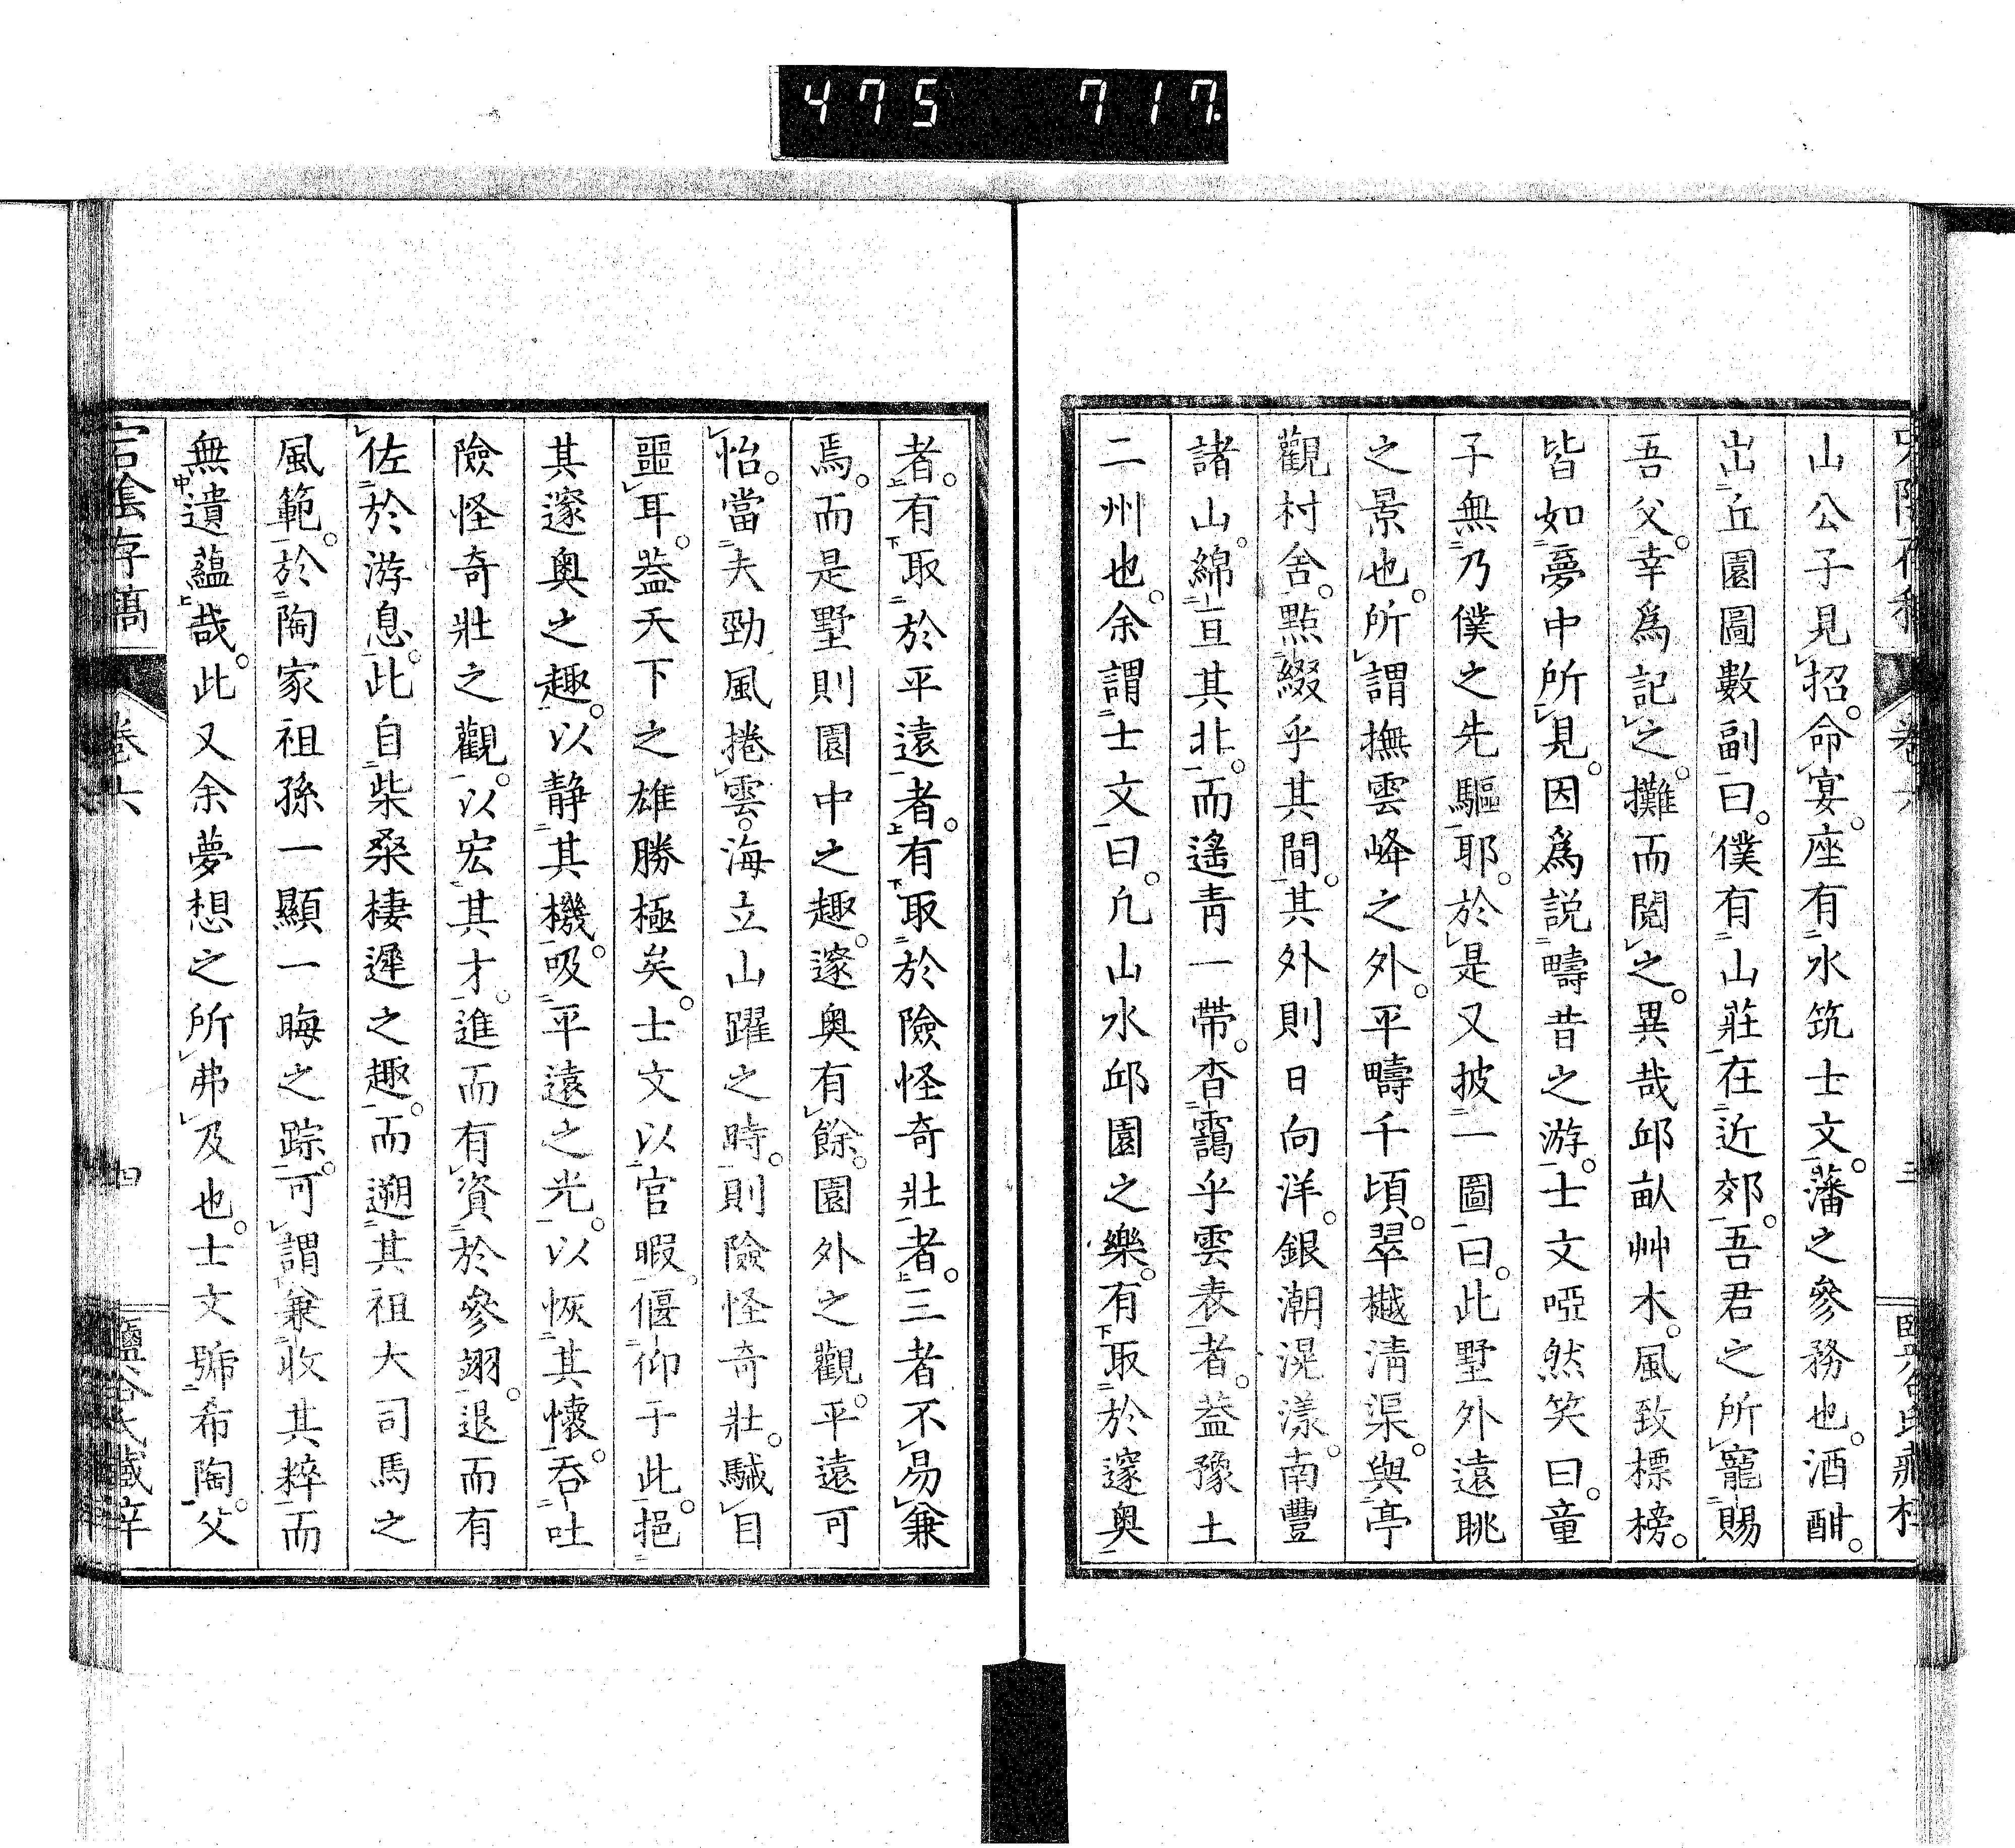 475 717
山公子見招。命宴。座有水筑士文。藩之參務也。酒酣。
出丘園圖數副曰。僕有山莊在近郊。吾君之所寵賜
吾父。幸爲記之。攤而閱之。異哉邱畝艸木。風致標榜。
皆如夢中所見。因爲説疇昔之游。士文啞然笑曰。童
子無乃僕之先驅耶。於是又披一圖曰。此墅外遠眺
之景也。所謂撫雲峰之外。平疇千頃。翠樾淸渠。與亭
觀村舍。點綴乎其間。其外則日向洋。銀潮滉漾。南豐
諸山。綿亘其北。而遙靑一帶。杳靄乎雲表者。葢豫土
二州也。余謂士文曰。凡山水邱園之樂。有取於邃奥
者。有取於平遠者。有取於險怪奇壯者。三者不易兼
焉。而是墅則園中之趣。邃奥有餘。園外之觀。平遠可
怡。當夫勁風捲雲。海立山躍之時。則險怪奇壯。駴目
噩耳。葢天下之雄勝極矣。士文以官暇。偃仰于此。挹
其邃奥之趣。以静其機。吸平遠之光。以恢其懷。吞吐
險怪奇壯之觀。以宏其才。進而有資於參翊。退而有
佐於游息。此自柴桑棲遲之趣。而遡其祖大司馬之
風範。於陶家祖孫一顯一晦之踪。可謂兼收其粹而
無遺藴哉。此又余夢想之所弗及也。士文號希陶。父
宕陰存稿 卷六 四